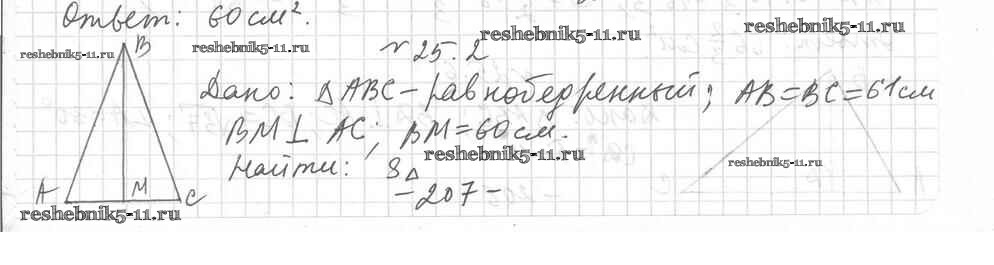 Ответ: 60 см².
reshebnik5-11.ru
B
reshebnik5-11.ru
№ 25.2
reshebnik5-11.ru
reshebnik5-11.ru
Дано: △ABC – равнобедренный; AB=BC=61см
BM⊥ AC; BM=60см.
reshebnik5-11.ru
reshebnik5-11.ru
Найти: S△
A
M
C
–207–
reshebnik5-11.ru